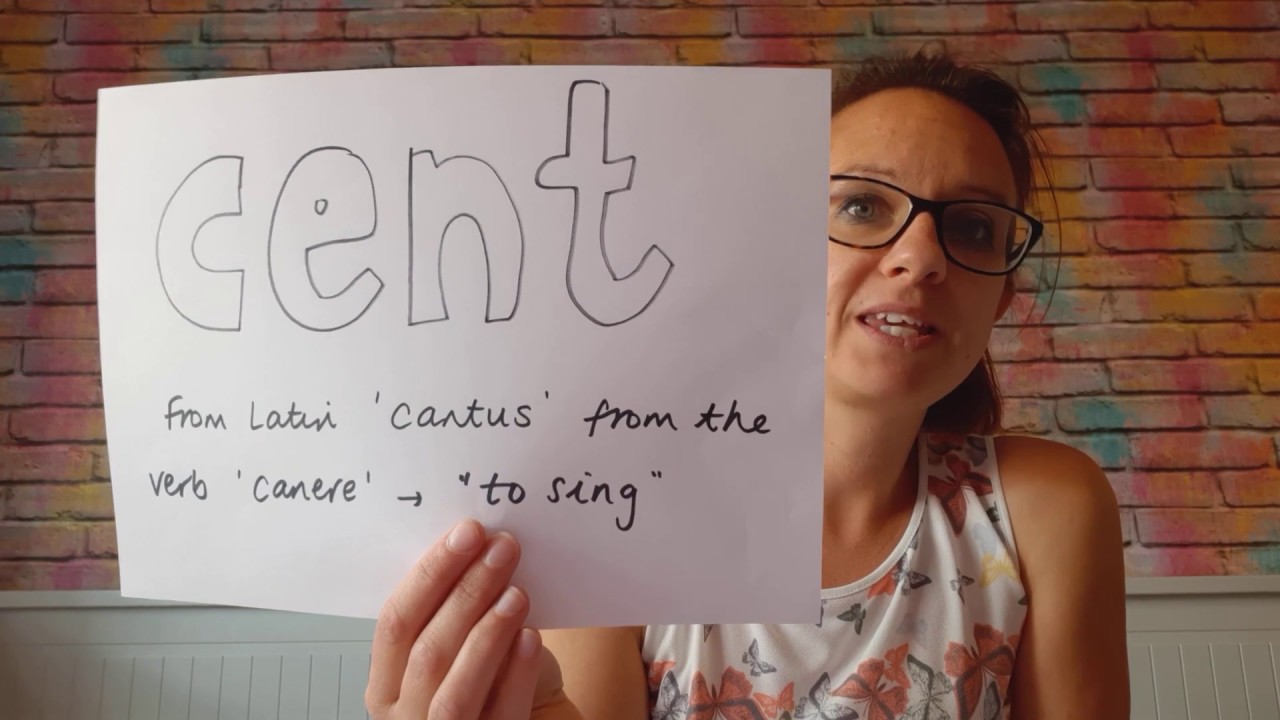 cent
from Latin 'cantus' from the
verb 'canere' → "to sing"